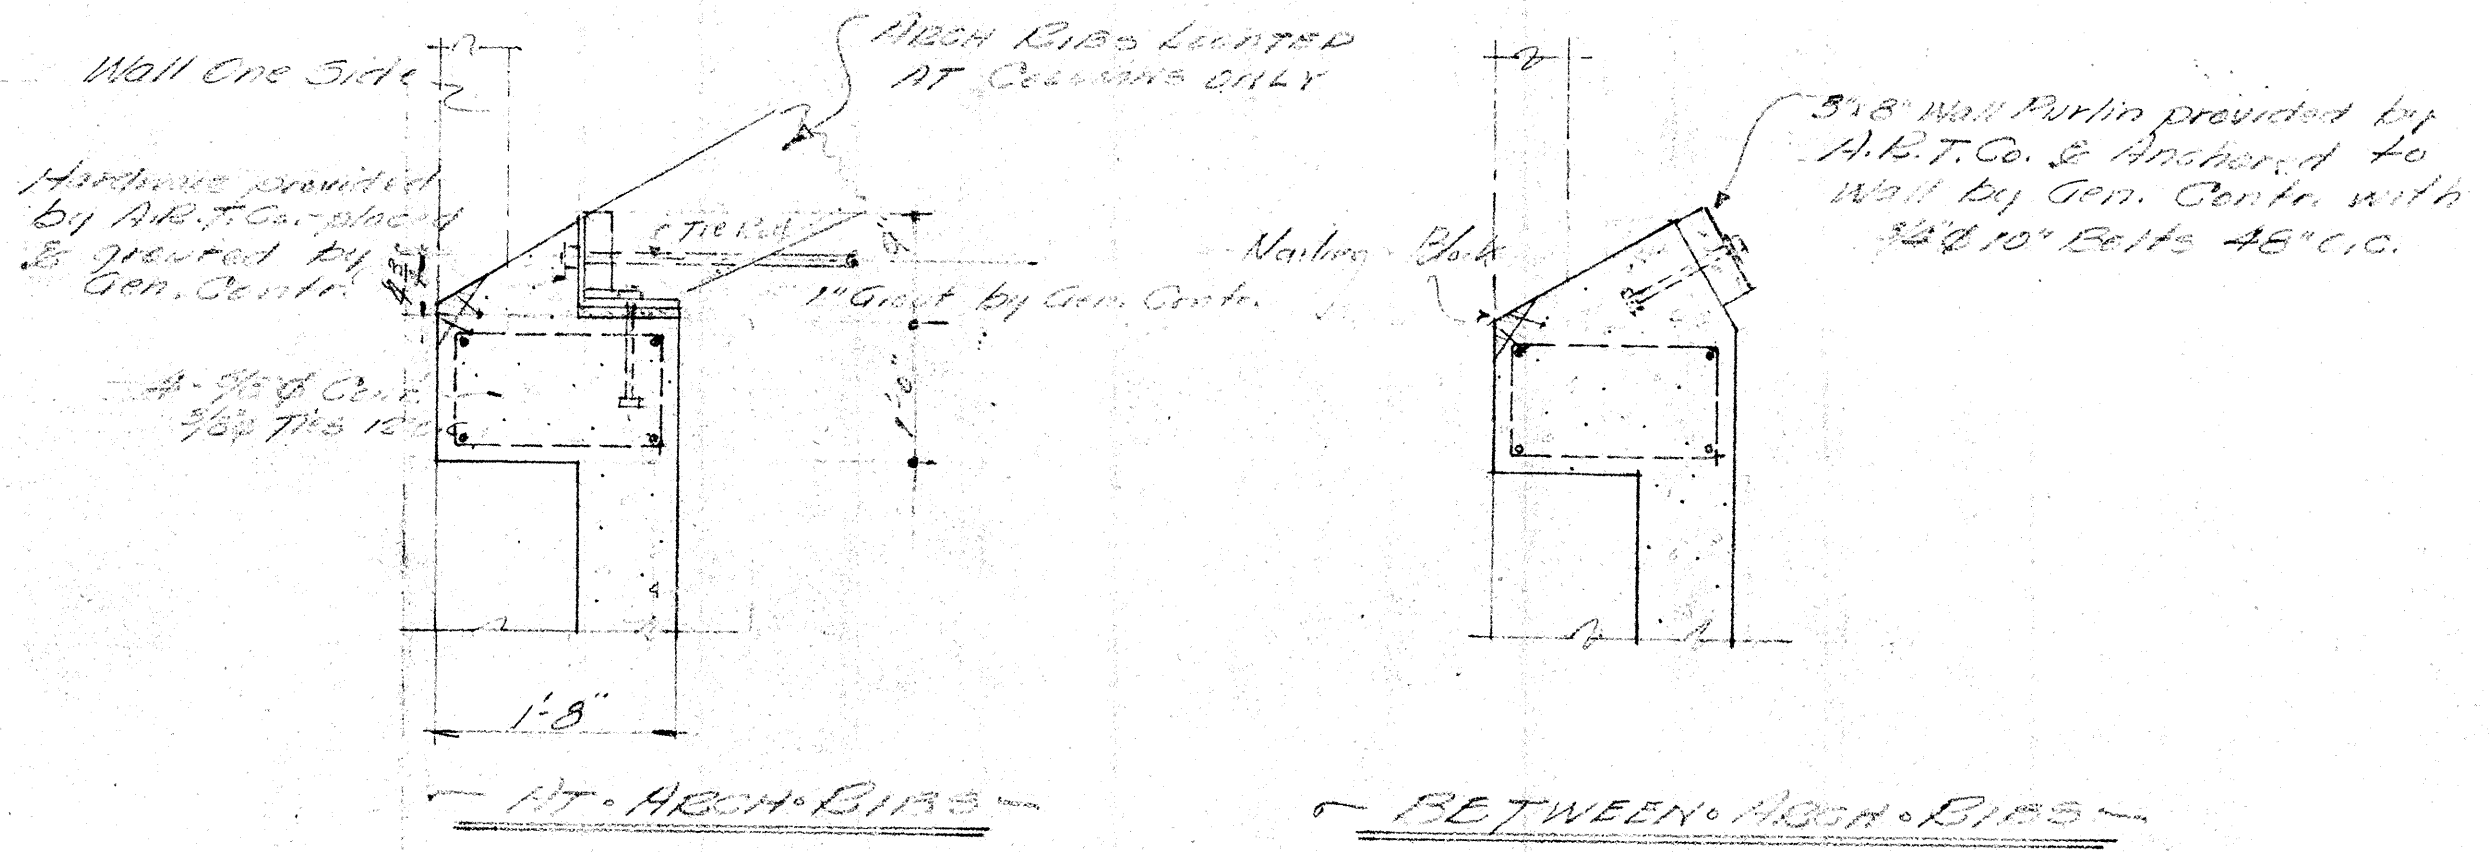 Wall One Side
ARCH RIBS LOCATED
AT COLUMNS ONLY
Hardware provided
by A.R.T.Co. placed
& grouted by
Gen. Contr.
Tie Rod
1" Grout by Gen. Contr.
4 - 5/8" ϕ Cont.
Ties 12" c.c.
1'-0"
1'-8"
AT · ARCH · RIBS
Nailing Block
3"x8" Wall Purlin provided by
A.R.T.Co. & Anchored to
Wall by Gen. Contr. with
3/4" ϕ 10" Bolts 48" c.c.
BETWEEN · ARCH · RIBS